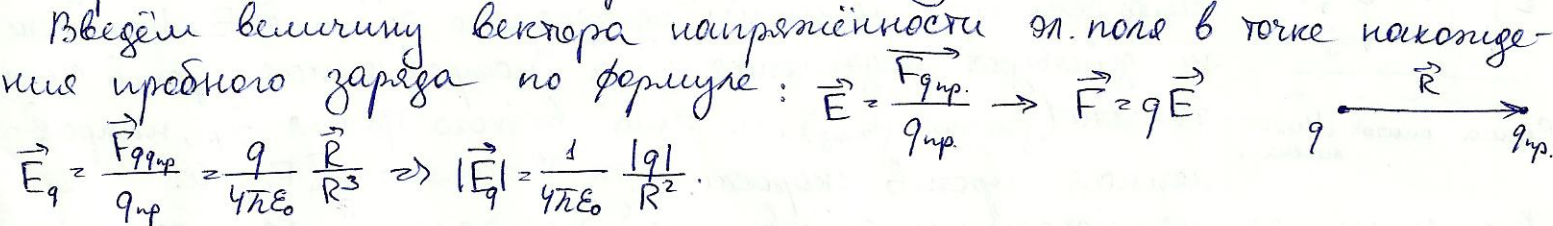 Введём величину вектора напряжённости эл. поля в точке нахожде-
ния пробного заряда по формуле: $\vec{E} = \frac{\vec{F_{q_{пр.}}}}{q_{пр.}} \rightarrow \vec{F} = q\vec{E}$ $\vec{R}$ $q$ $q_{пр.}$
$\vec{E}_q = \frac{\vec{F}_{qq_{пр}}}{q_{пр}} = \frac{q}{4\pi\varepsilon_0} \frac{\vec{R}}{R^3} \Rightarrow |\vec{E}_q| = \frac{1}{4\pi\varepsilon_0} \frac{|q|}{R^2}.$